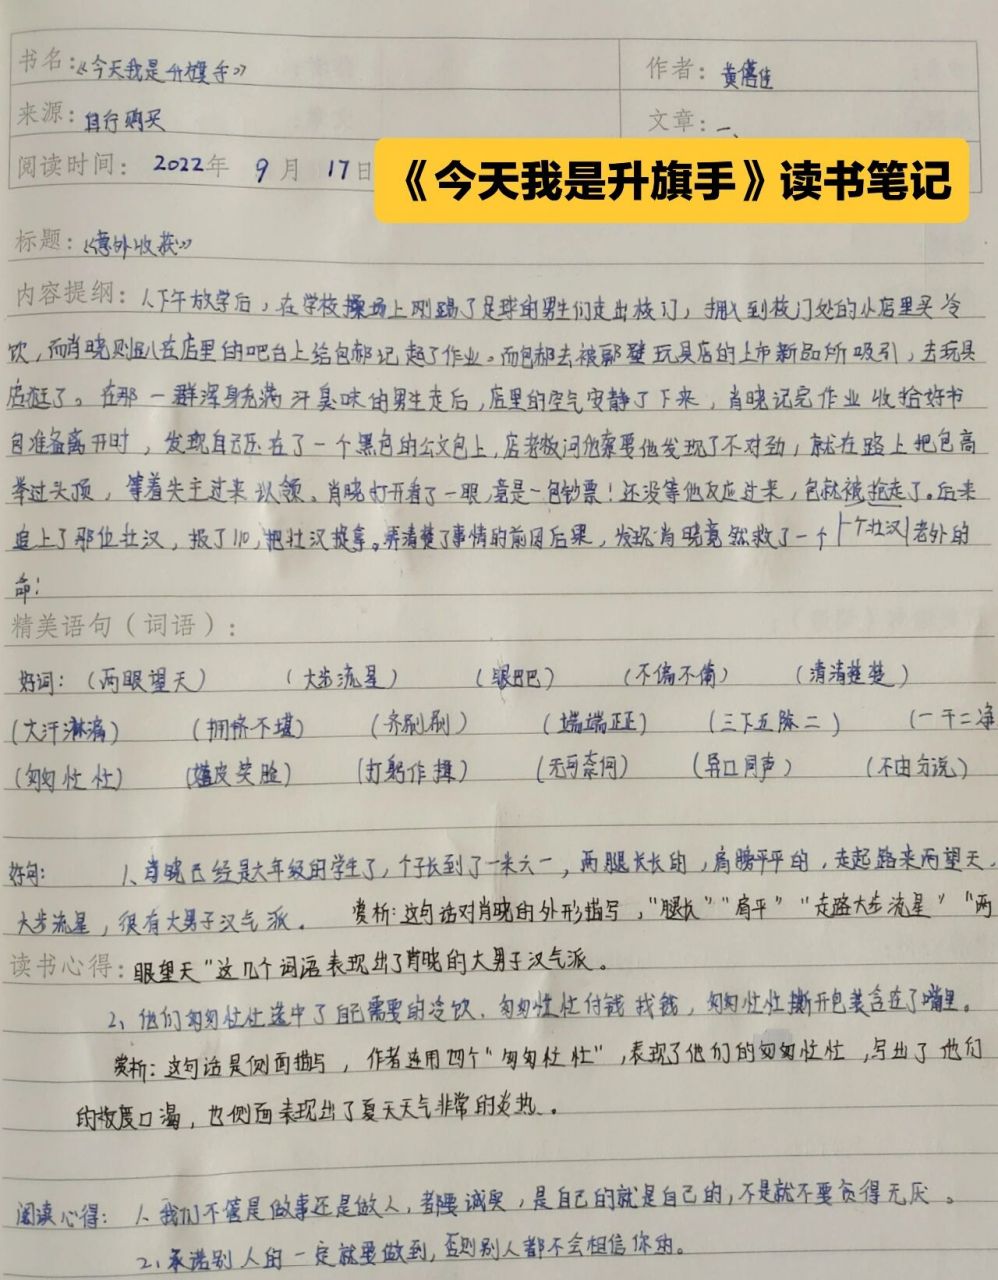 书名：《今天我是升旗手》 作者：黄蓓佳
来源：自行购买 文章：一、
阅读时间：2022年9月17日
《今天我是升旗手》读书笔记
标题：《意外收获》
内容提纲：1、下午放学后，在学校操场上刚踢了足球的男生们走出校门，拥入到校门处的小店里买冷
饮，而肖晓则趴在店里的吧台上给包郝记起了作业。而包郝去被隔壁玩具店的上市新品所吸引，去玩具
店逛了。在那一群浑身充满汗臭味的男生走后，店里的空气安静了下来，肖晓记完作业收拾好书
包准备离开时，发现自己压在了一个黑色的公文包上，店老板问他索要他发现了不对劲，就在路上把包高
举过头顶，等着失主过来认领。肖晓打开看了一眼，竟是一包钞票！还没等他反应过来，包就被抢走了。后来
追上了那位壮汉，报了110，把壮汉捉拿。弄清楚了事情的前因后果，发现肖晓竟然救了一个个壮汉老外的
命！
精美语句（词语）：
好词：（两眼望天） （大步流星） （眼巴巴） （不偏不倚） （清清楚楚）
（大汗淋漓） （拥挤不堪） （齐刷刷） （端端正正） （三下五除二） （一干二净
（匆匆忙忙） （嬉皮笑脸） （打躬作揖） （无可奈何） （异口同声） （不由分说）
好句： 1、肖晓已经是六年级的学生了，个子长到了一米六一，两腿长长的，肩膀平平的，走起路来两望天，
大步流星，很有大男子汉气派。 赏析：这句话对肖晓的外形描写，“腿长”“肩平”“走路大步流星”“两
读书心得：眼望天”这几个词语表现出了肖晓的大男子汉气派。
2、他们匆匆忙忙选中了自己需要的冷饮、匆匆忙忙付钱找钱，匆匆忙忙撕开包装含在了嘴里。
赏析：这句话是侧面描写，作者连用四个“匆匆忙忙”，表现了他们的匆匆忙忙，写出了他们
的极度口渴，也侧面表现出了夏天天气非常的炎热。
阅读心得：1、我们不管是做事还是做人，都要诚实，是自己的就是自己的，不是就不要贪得无厌。
2、承诺别人的一定就要做到，否则别人都不会相信你的。